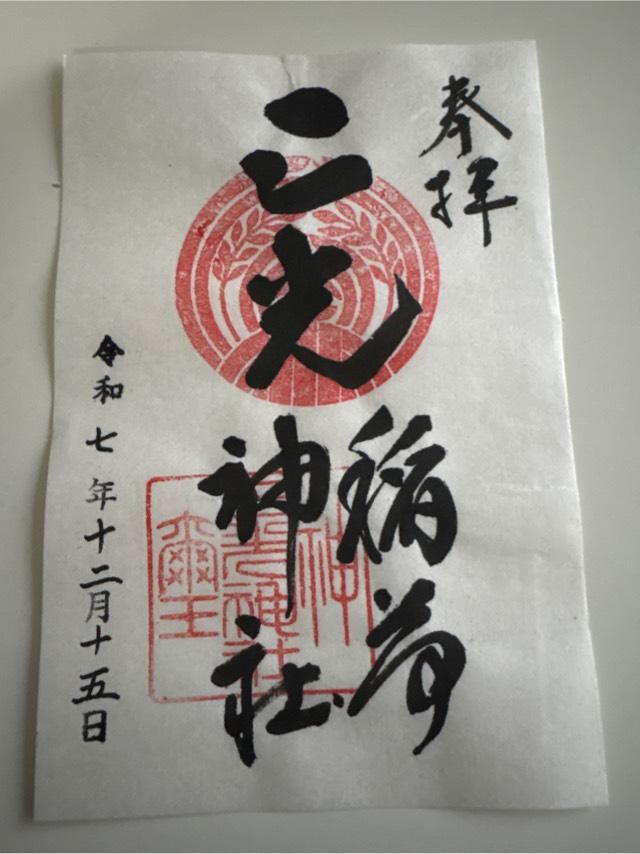 奉拝
三光
稲荷
神社
令和七年十二月十五日